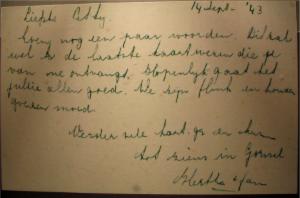 14 Sept - '43
Liefste Betty.
Even nog een paar woorden. Dit zal
wel de laatste kaart wezen die je
van me ontvangt. Hopenlijk gaat het
jullie allen goed. We zijn flink en houden
goeden moed.
Verder vele hart. gr. en
tot ziens in Gorssel
Hertha